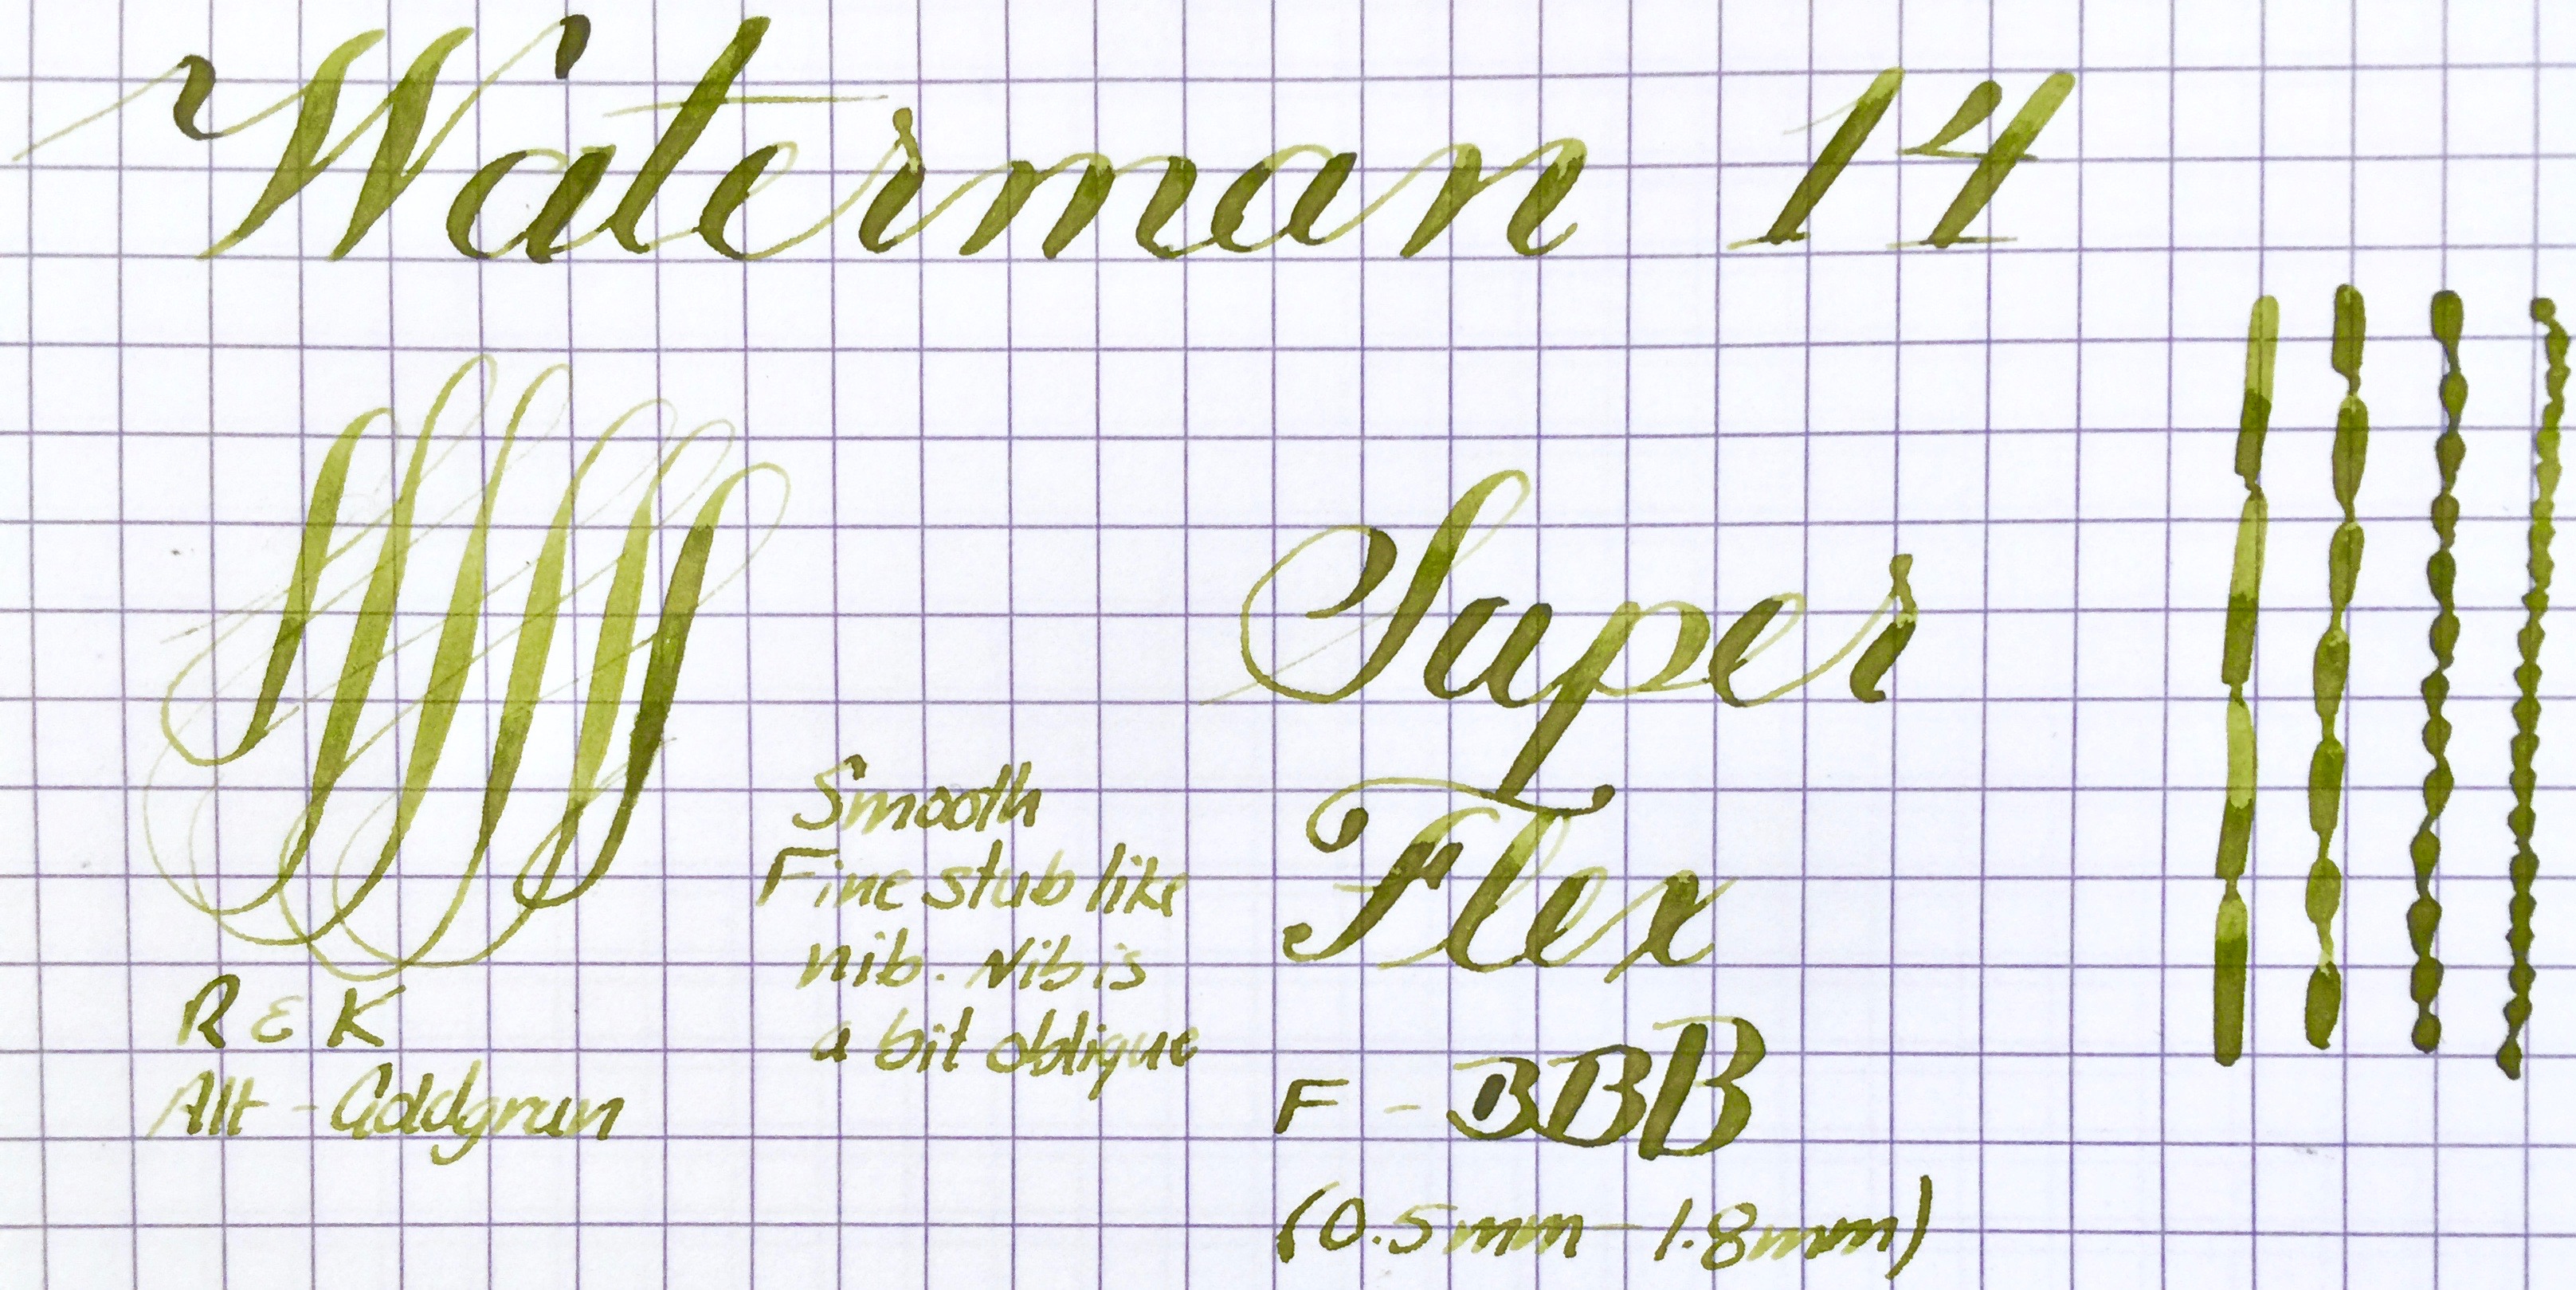 Waterman 14
Super
Flex
Smooth
Fine stub like
nib. Nib is
a bit oblique
R & K
Alt - Goldgrun
F - BBB
(0.5mm - 1.8mm)